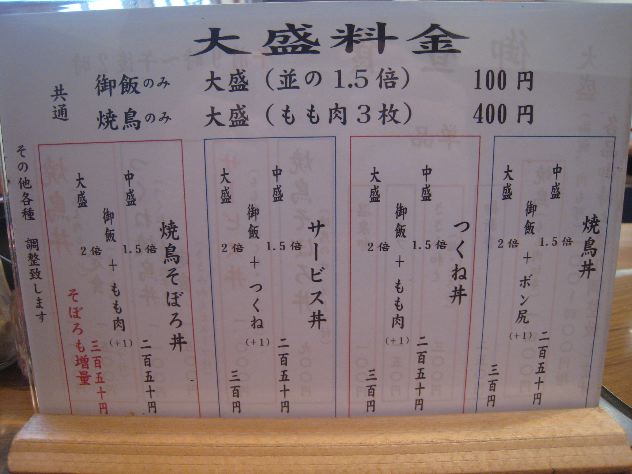 大盛料金
共通
御飯のみ 大盛(並の1.5倍) 100円
焼鳥のみ 大盛(もも肉3枚) 400円
焼鳥丼
中盛 1.5倍 二百五十円
御飯+ボン尻(+1)
大盛 2倍 三百円
つくね丼
中盛 1.5倍 二百五十円
御飯+もも肉(+1)
大盛 2倍 三百円
サービス丼
中盛 1.5倍 二百五十円
御飯+つくね(+1)
大盛 2倍 三百円
焼鳥そぼろ丼
中盛 1.5倍 二百五十円
御飯+もも肉(+1)
大盛 2倍 三百五十円
そぼろも増量
その他各種 調整致します